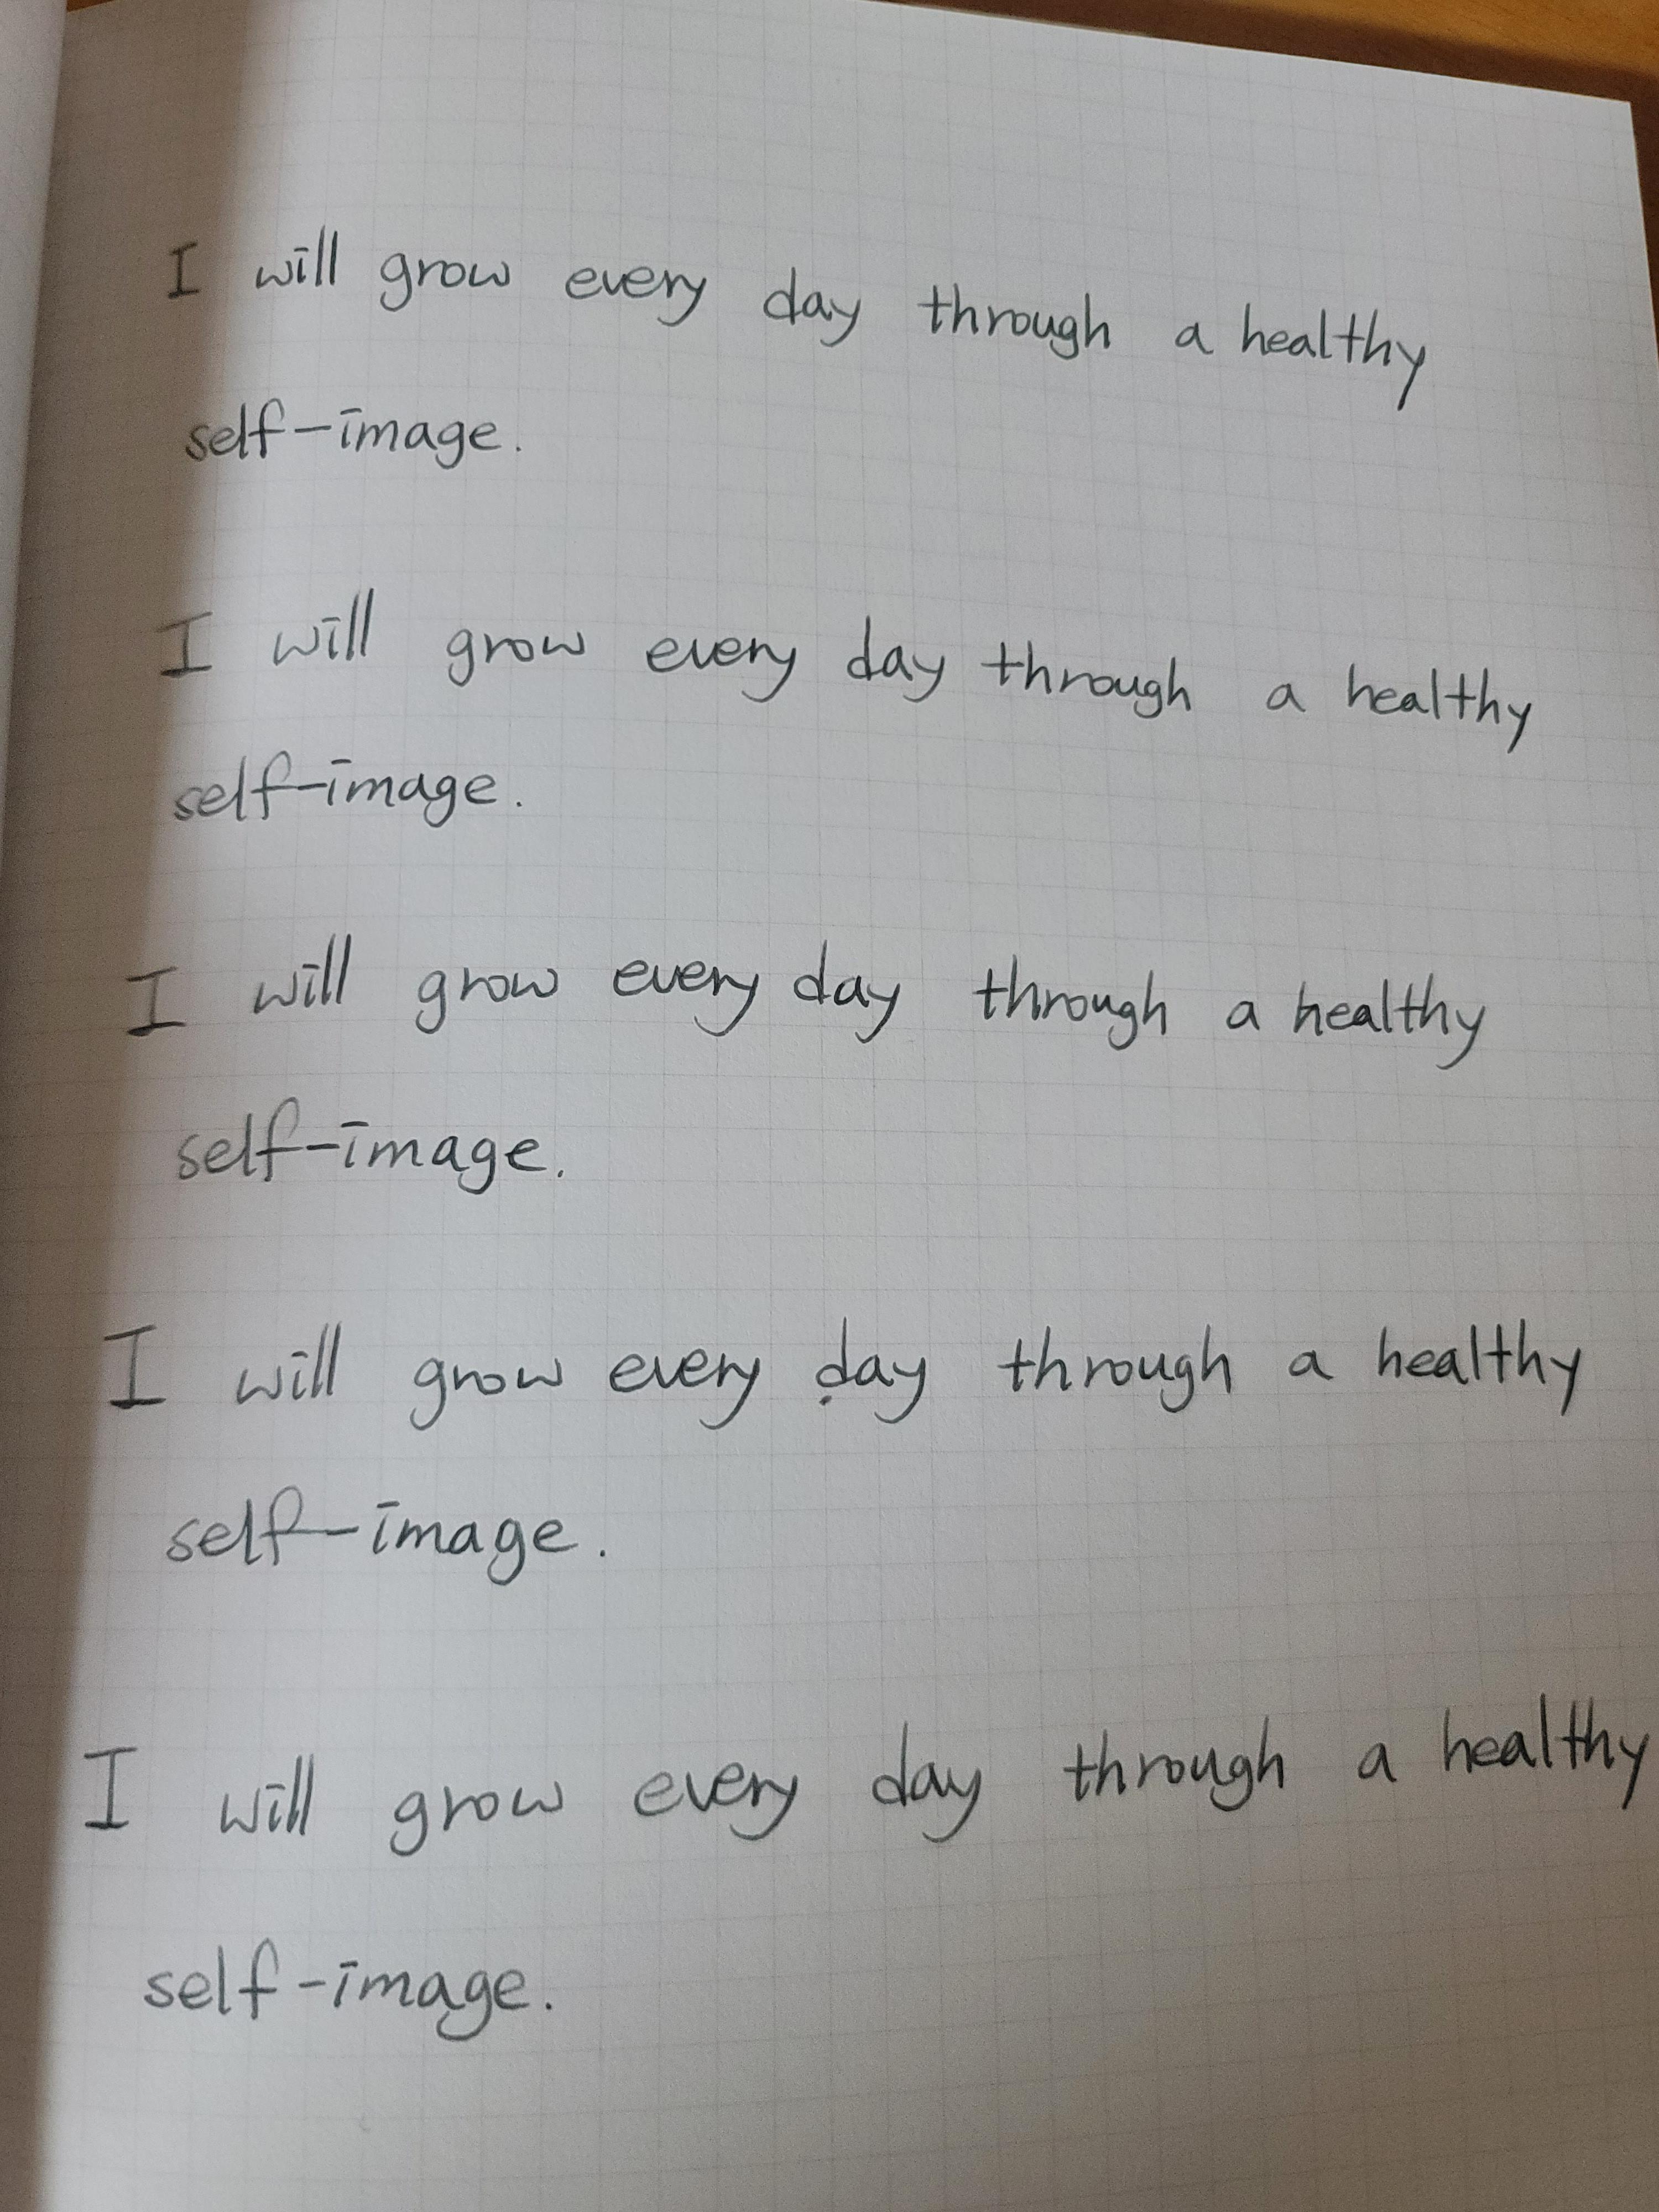 I will grow every day through a healthy
self-image.
I will grow every day through a healthy
self-image.
I will grow every day through a healthy
self-image.
I will grow every day through a healthy
self-image.
I will grow every day through a healthy
self-image.